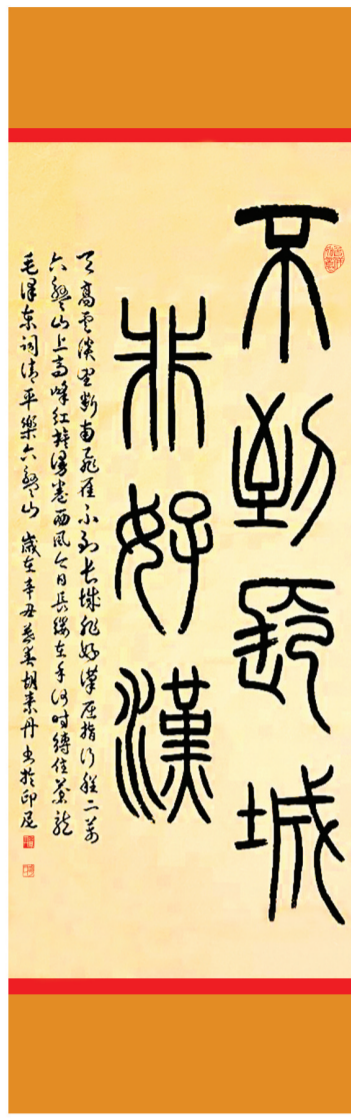 不到長城
非好漢
天高雲淡望斷南飛雁不到長城非好漢屈指行程二萬
六盤山上高峰紅旗漫卷西風今日長纓在手何時縛住蒼龍
毛澤東詞清平樂六盤山 歲在辛丑暮春胡素丹书於印尼